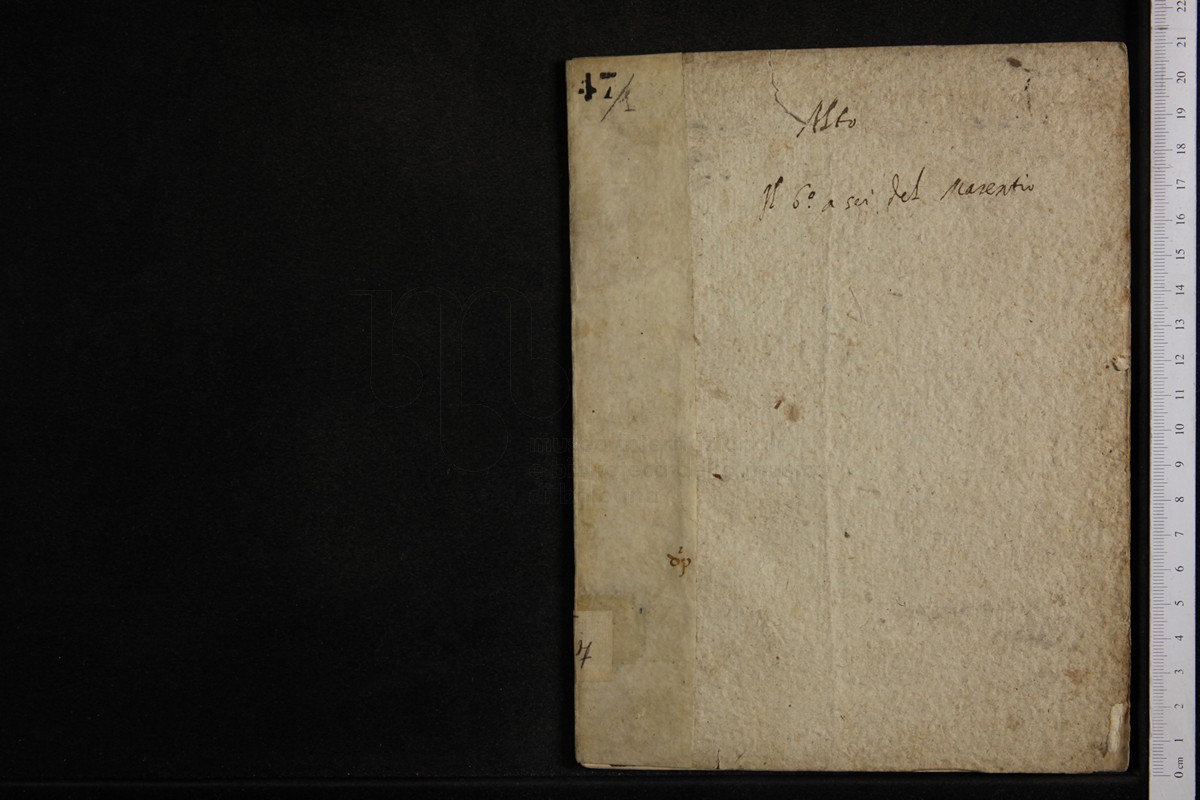 Alto
Il 6º a sei del Marentio
7
22
21
20
19
18
17
16
15
14
13
12
11
10
9
8
7
6
5
4
3
2
1
0 cm